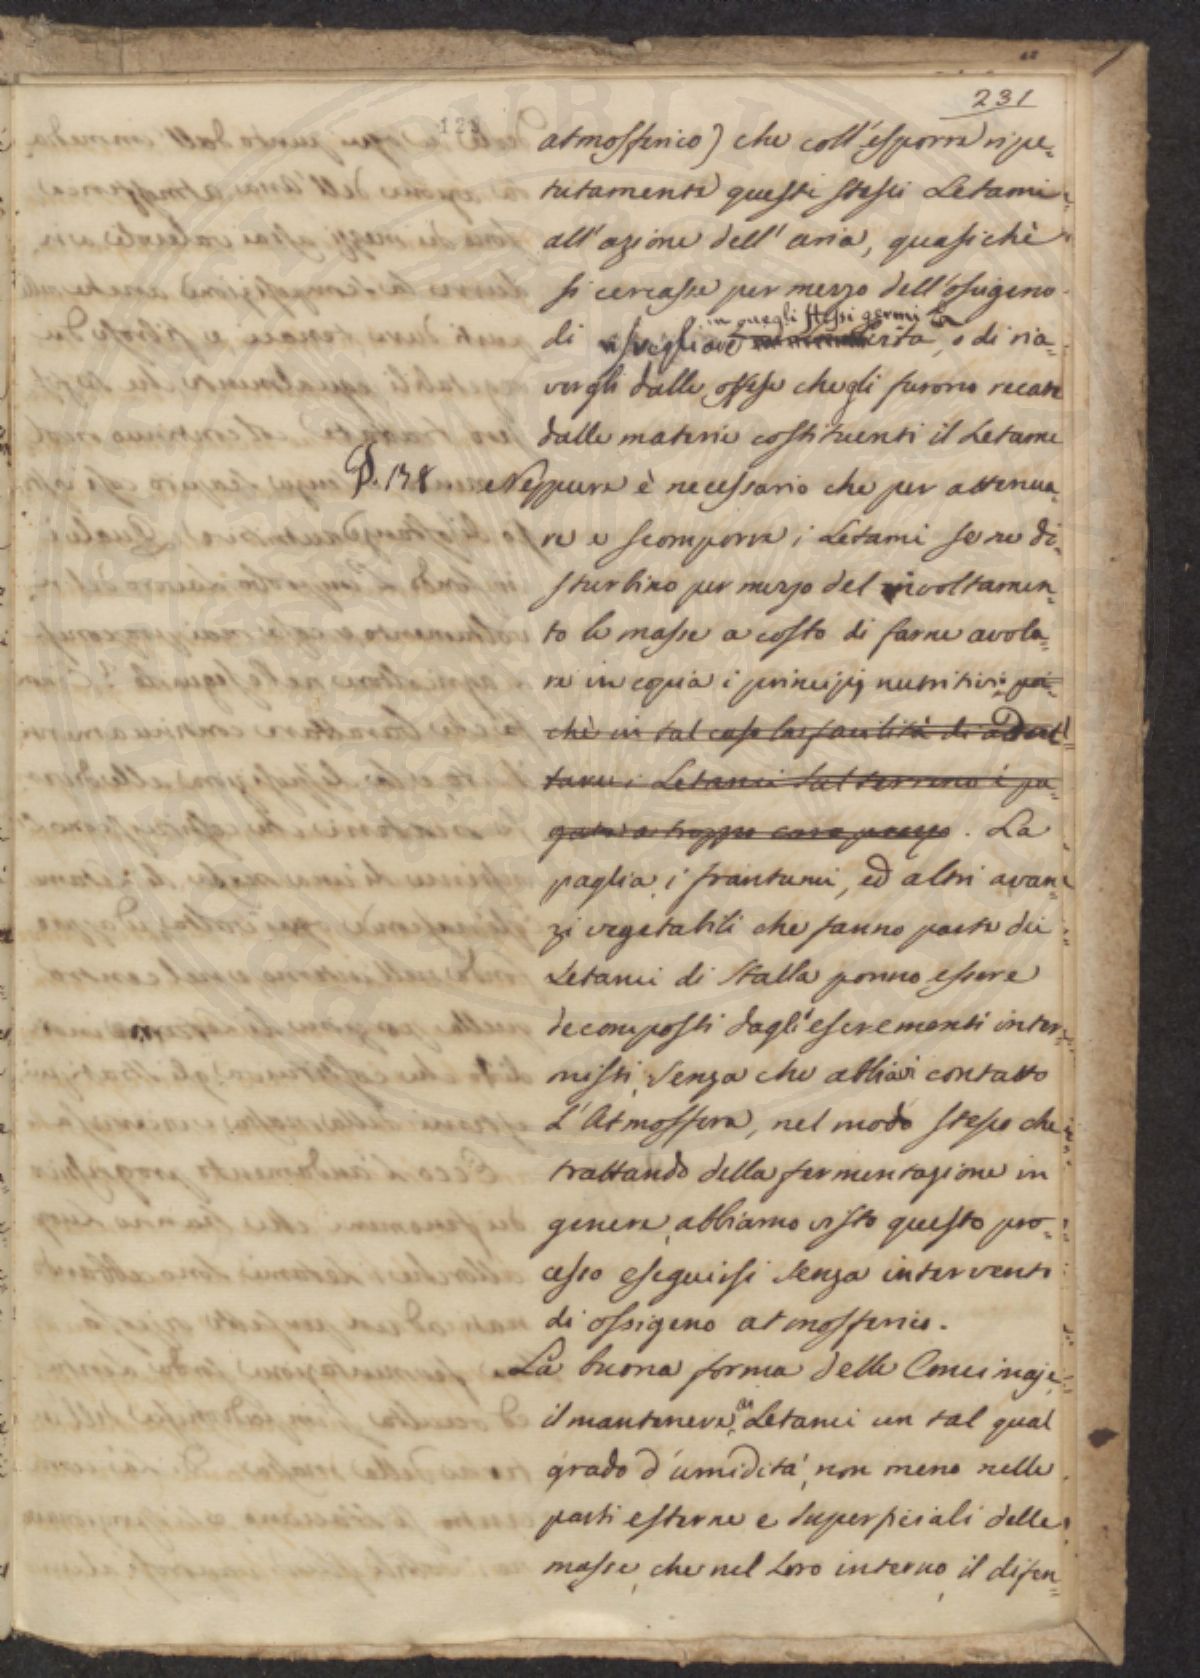 231
123
atmosferico) che coll'esporre ripe=
tutamente questi stessi Letami
all'azione dell'aria, quasichè
si cercasse per mezzo dell'ossigeno
in quegli stessi germi la
di risvegliare vita, o di ria=
vergli dalle offese che gli furono recate
dalle materie costituenti il Letame
§. 138 Neppure è necessario che per attenua=
re e scomporre i Letami se ne di=
sturbino per mezzo del rivoltamen=
to le masse a costo di farne avola=
re in copia i principj nutritivi poi=
chè in tal caso la facilità di adat=
tare i Letami sul terreno è pa=
gata a troppo caro prezzo. La
paglia, i frantumi, ed altri avan=
zi vegetabili che fanno parte dei
Letami di Stalla ponno essere
decomposti dagli escrementi inter=
misti, senza che abbiavi contatto
l'Atmosfera, nel modo stesso che
trattando della fermentazione in
genere, abbiamo visto questo pro=
cesso eseguirsi senza intervento
di ossigeno atmosferico.
La buona forma delle Concimaje,
il mantenere ai Letami un tal qual
grado d'umidità, non meno nelle
parti esterne e superficiali delle
masse, che nel loro interno, il difen=